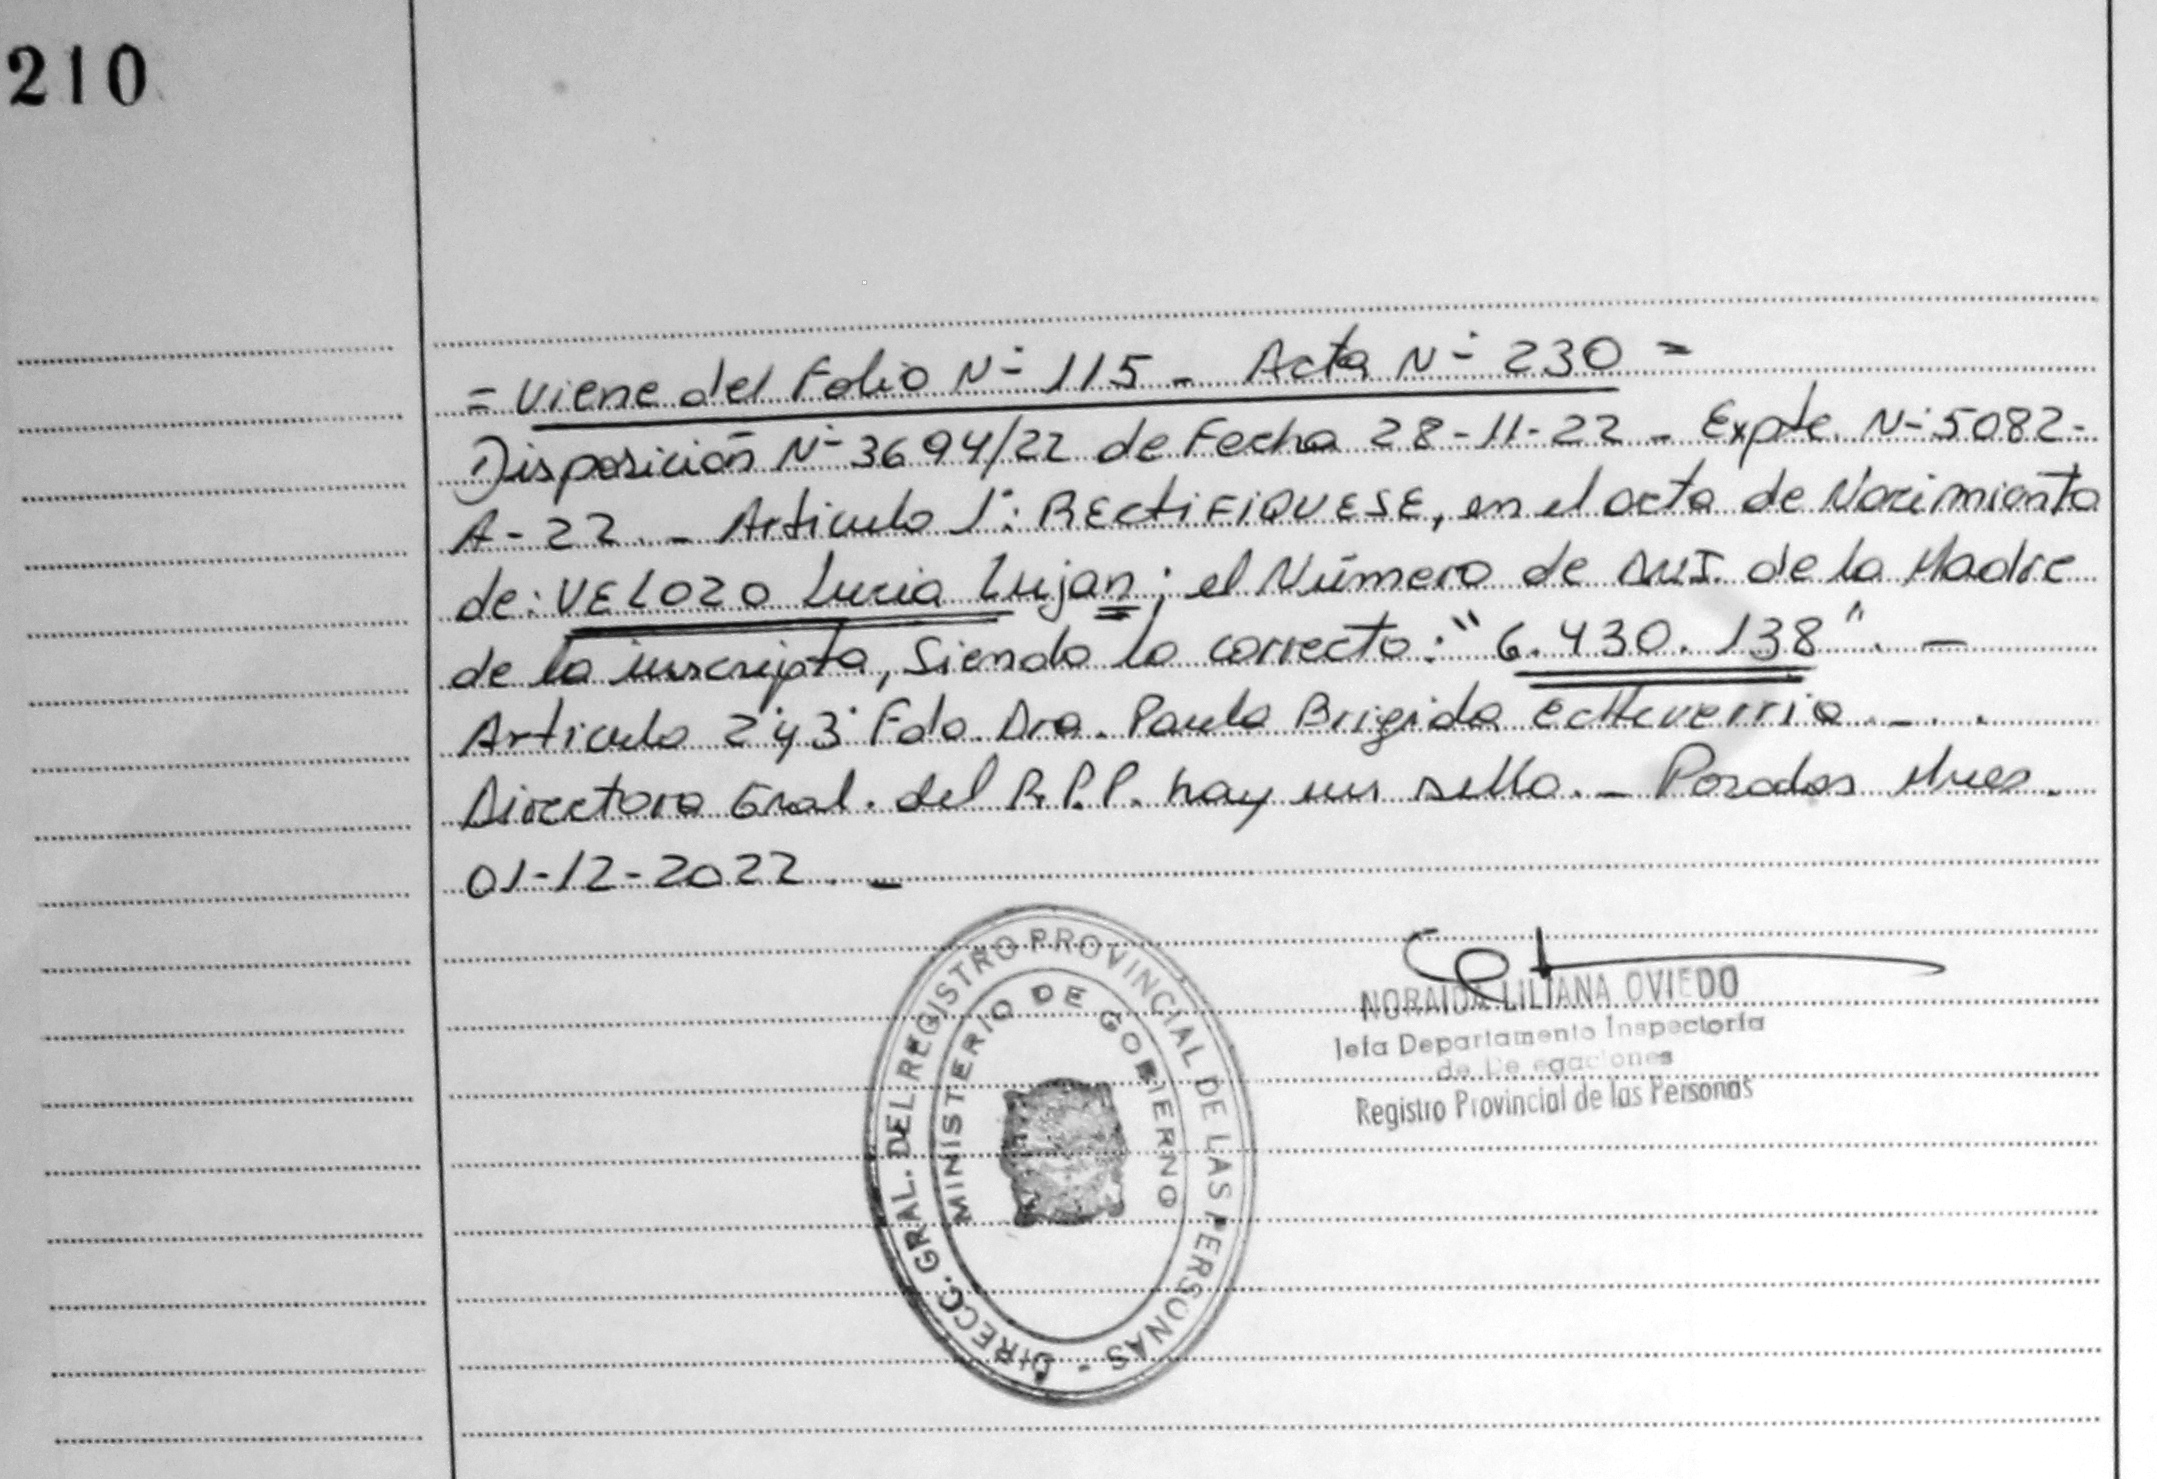 210
= Viene del Folio N° 115 - Acta N° 230 =
Disposición N° 3694/22 de Fecha 28-11-22 - Expte. N° 5082-
A-22. - Articulo 1°: RECtiFiQUESE, en el acta de Nacimiento
de: VELOZO Lucia Lujan; el Número de D.N.I. de la Madre
de la inscripta, Siendo lo correcto: "6.430.138". -
Articulo 2° y 3° Fdo. Dra. Paula Brigida Echeverria. - .
Directora Gral. del R.P.P. hay un sello. - Posadas Mnes.
01-12-2022. -
DIRECC. GRAL. DEL REGISTRO PROVINCIAL DE LAS PERSONAS -
MINISTERIO DE GOBIERNO
NORAIDA LILIANA OVIEDO
Jefa Departamento Inspectoría
de Delegaciones
Registro Provincial de las Personas